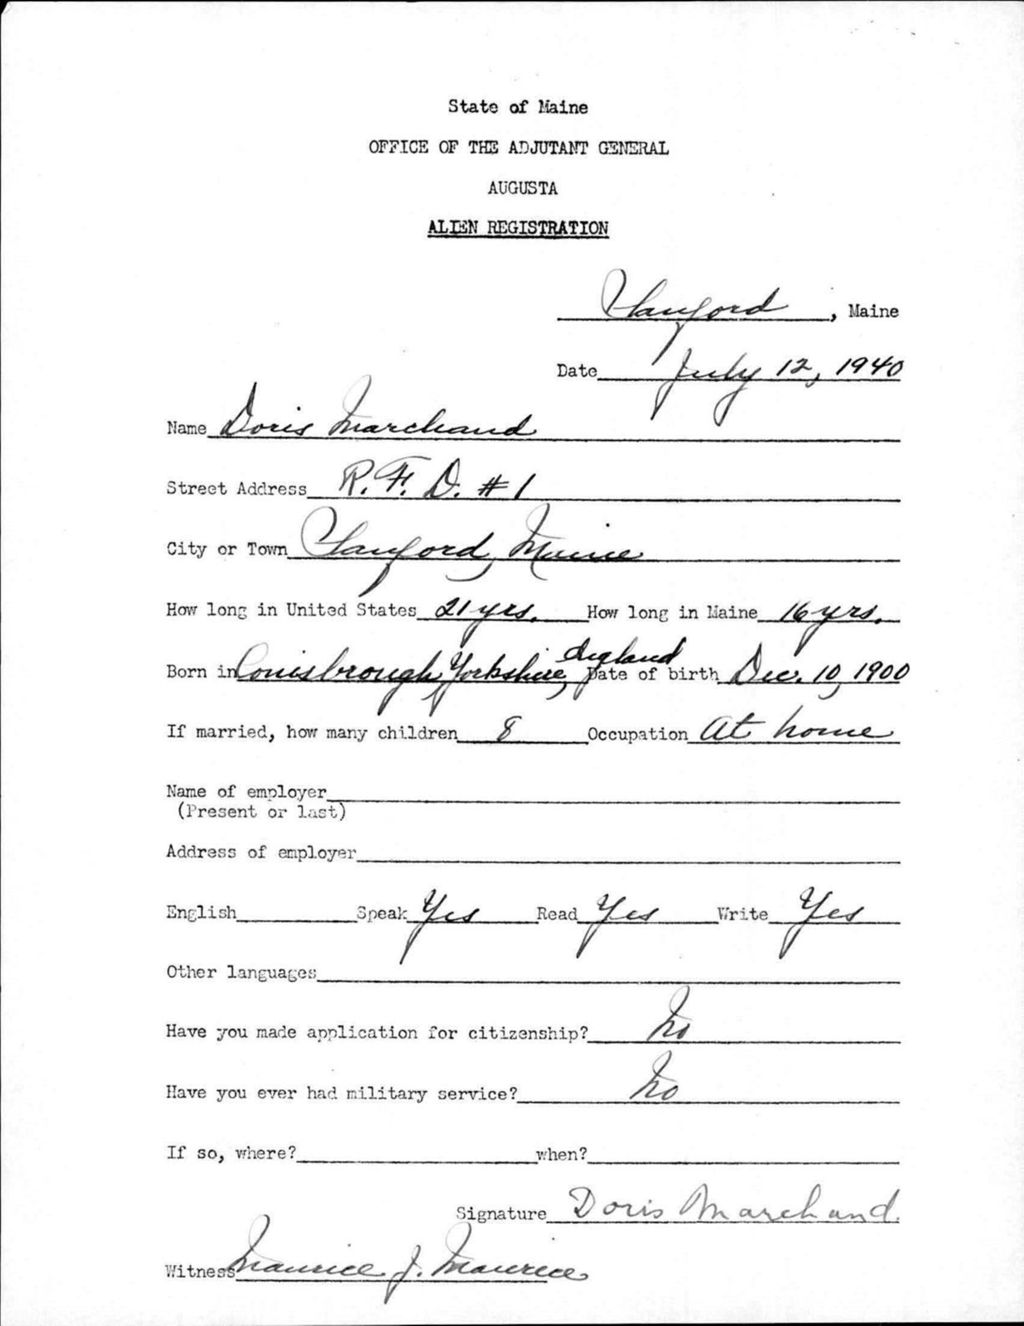 State of Maine
OFFICE OF THE ADJUTANT GENERAL
AUGUSTA
ALIEN REGISTRATION
Sanford, Maine
Date July 12, 1940
Name Doris Marchand
Street Address R.F.D. #1
City or Town Sanford, Maine
How long in United States 21 yrs. How long in Maine 16 yrs.
Born in Conisbrough, Yorkshire, England Date of birth Dec. 10, 1900
If married, how many children 8 Occupation At home
Name of employer
(Present or last)
Address of employer
English Speak Yes Read Yes Write Yes
Other languages
Have you made application for citizenship? No
Have you ever had military service? No
If so, where? when?
Signature Doris Marchand.
Witness Maurice J. Maurice